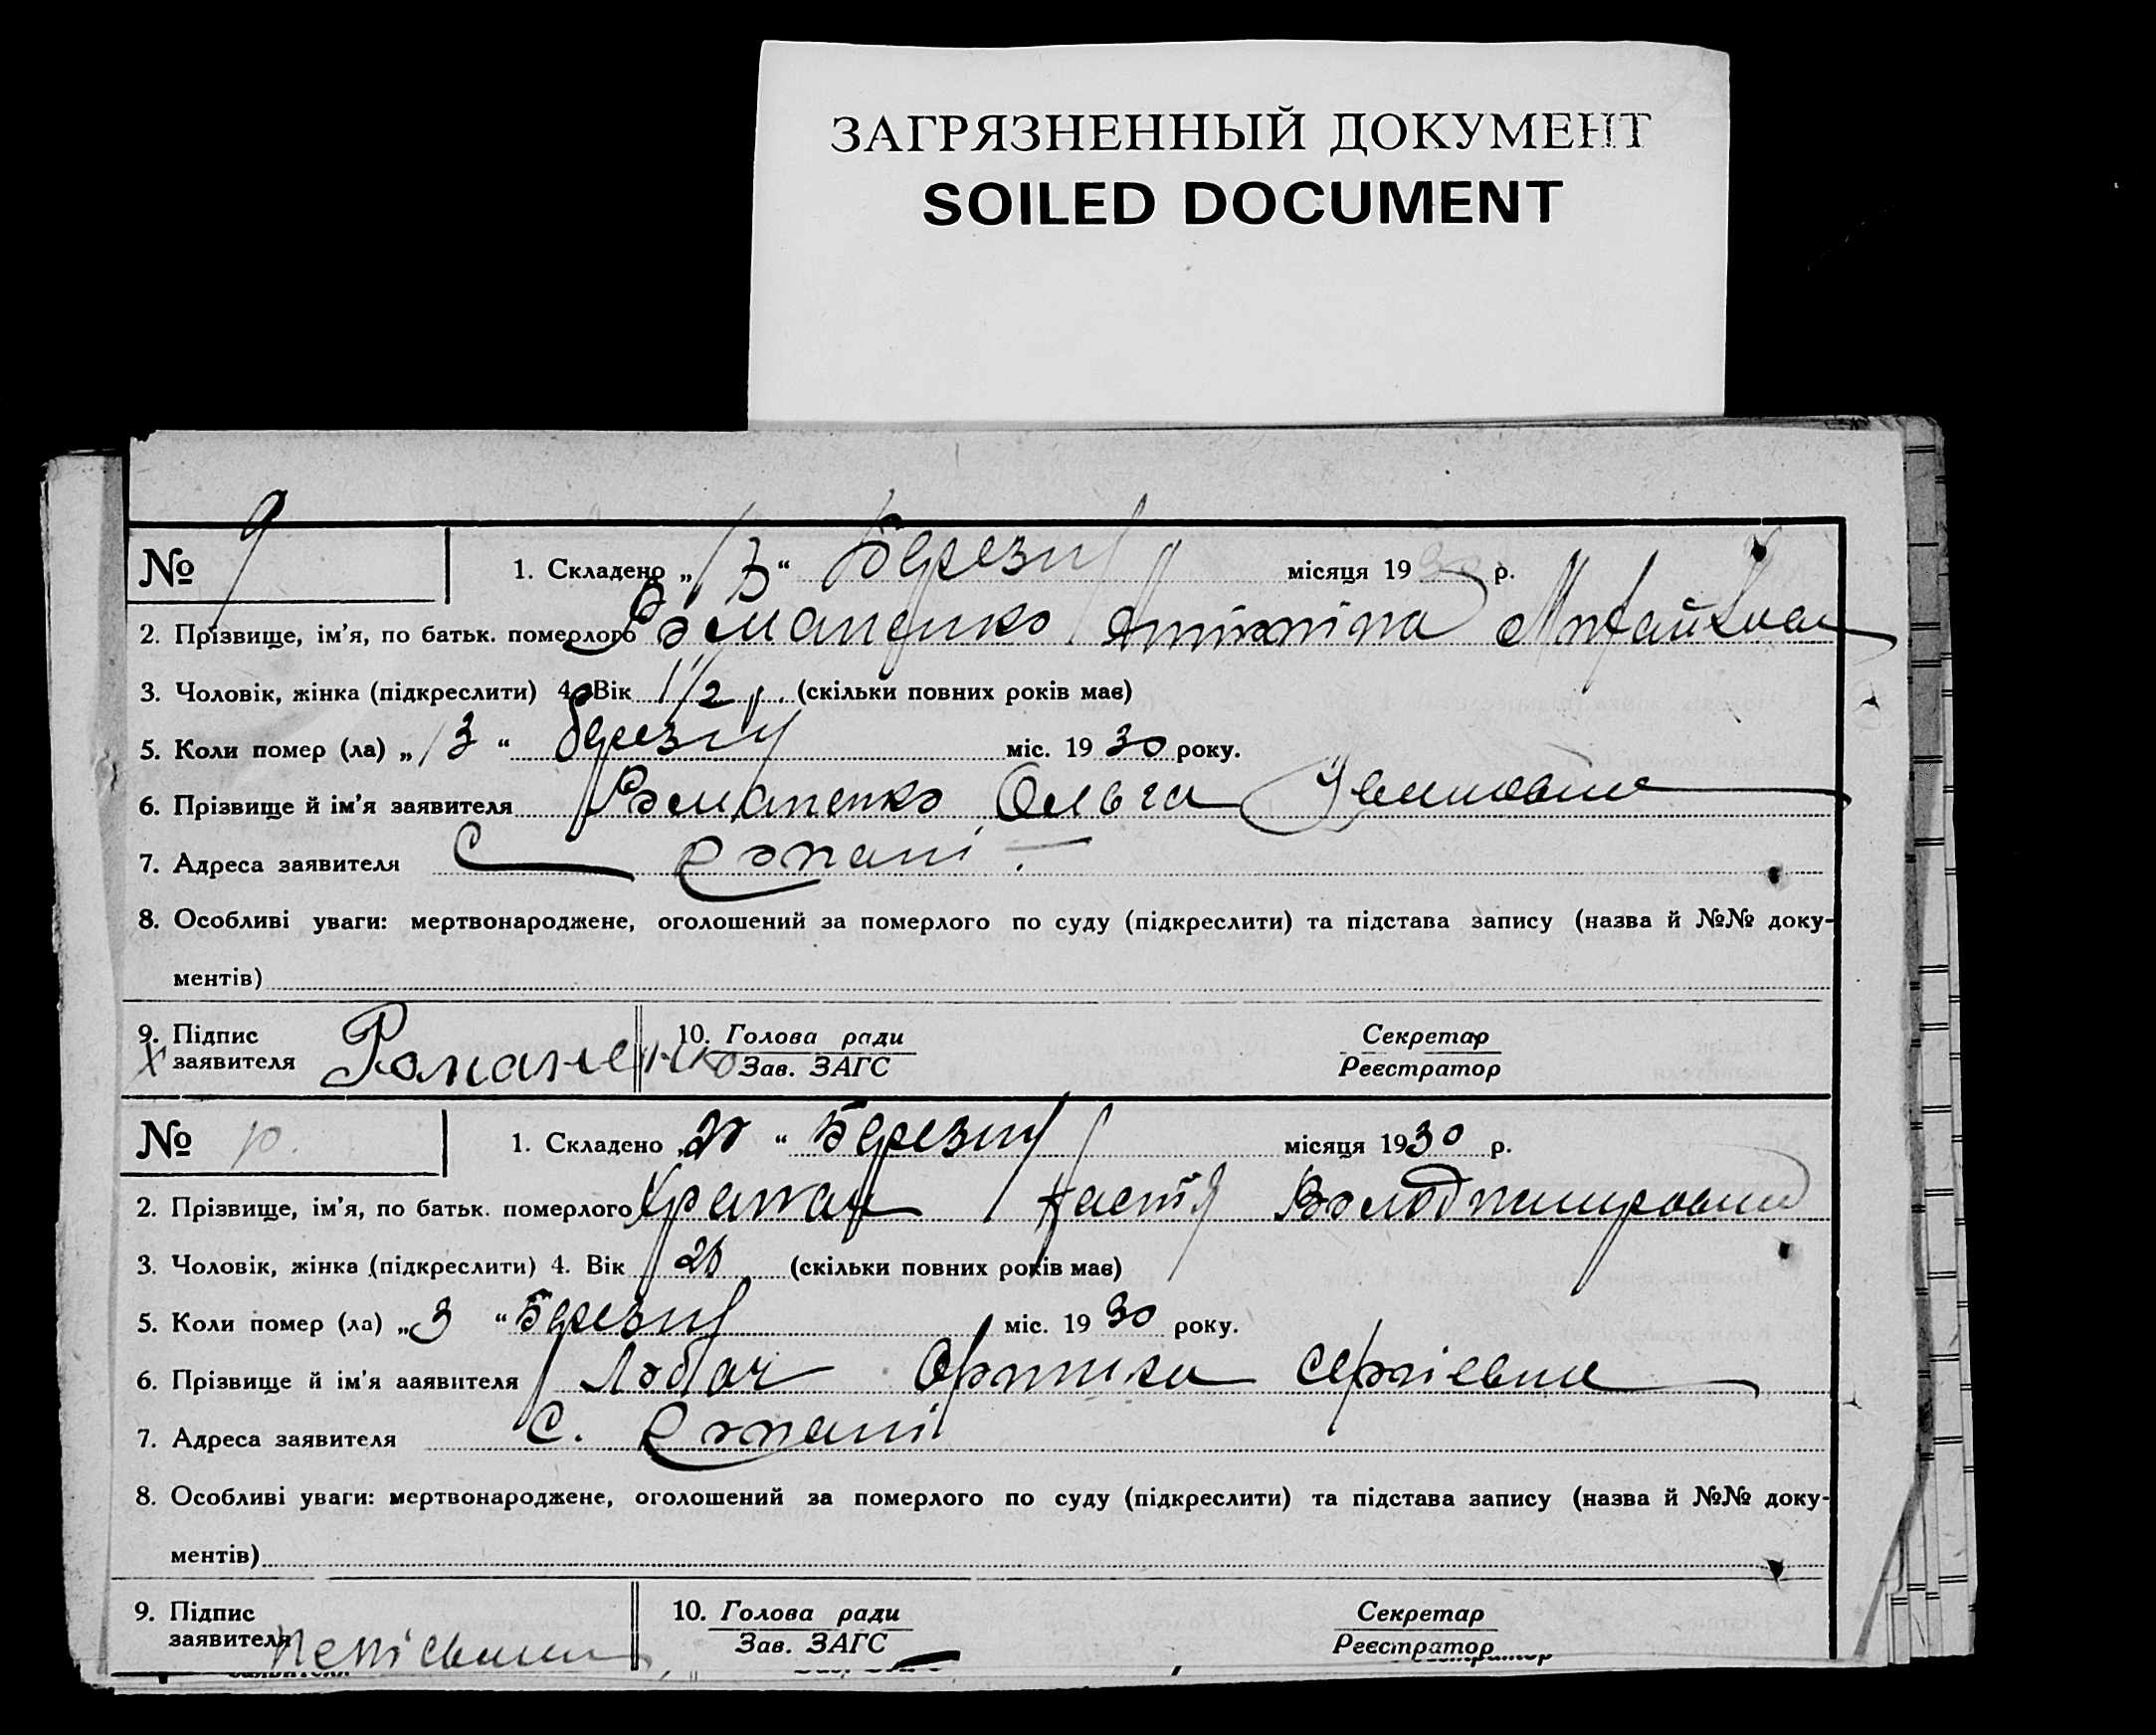 ЗАГРЯЗНЕННЫЙ ДОКУМЕНТ
SOILED DOCUMENT
№ 9
1. Складено „13“ Березня місяця 1930 р.
2. Прізвище, ім'я, по батьк. померлого Романенко
3. Чоловік, жінка (підкреслити) 4. Вік 1 1/2 (скільки повних років має)
5. Коли помер (ла) „13“ березня міс. 1930 року.
6. Прізвище й ім'я заявителя Романенко Ольга
7. Адреса заявителя С
8. Особливі уваги: мертвонароджене, оголошений за померлого по суду (підкреслити) та підстава запису (назва й №№ доку-
ментів)
9. Підпис заявителя Романенко
10. Голова ради
Зав. ЗАГС
Секретар
Реєстратор
№ 10.
1. Складено „20“ Березня місяця 1930 р.
2. Прізвище, ім'я, по батьк. померлого Настя Володимировна
3. Чоловік, жінка (підкреслити) 4. Вік (скільки повних років має)
5. Коли помер (ла) „3“ Березня міс. 1930 року.
6. Прізвище й ім'я заявителя Лобач Сергієвна
7. Адреса заявителя С.
8. Особливі уваги: мертвонароджене, оголошений за померлого по суду (підкреслити) та підстава запису (назва й №№ доку-
ментів)
9. Підпис заявителя
10. Голова ради
Зав. ЗАГС
Секретар
Реєстратор